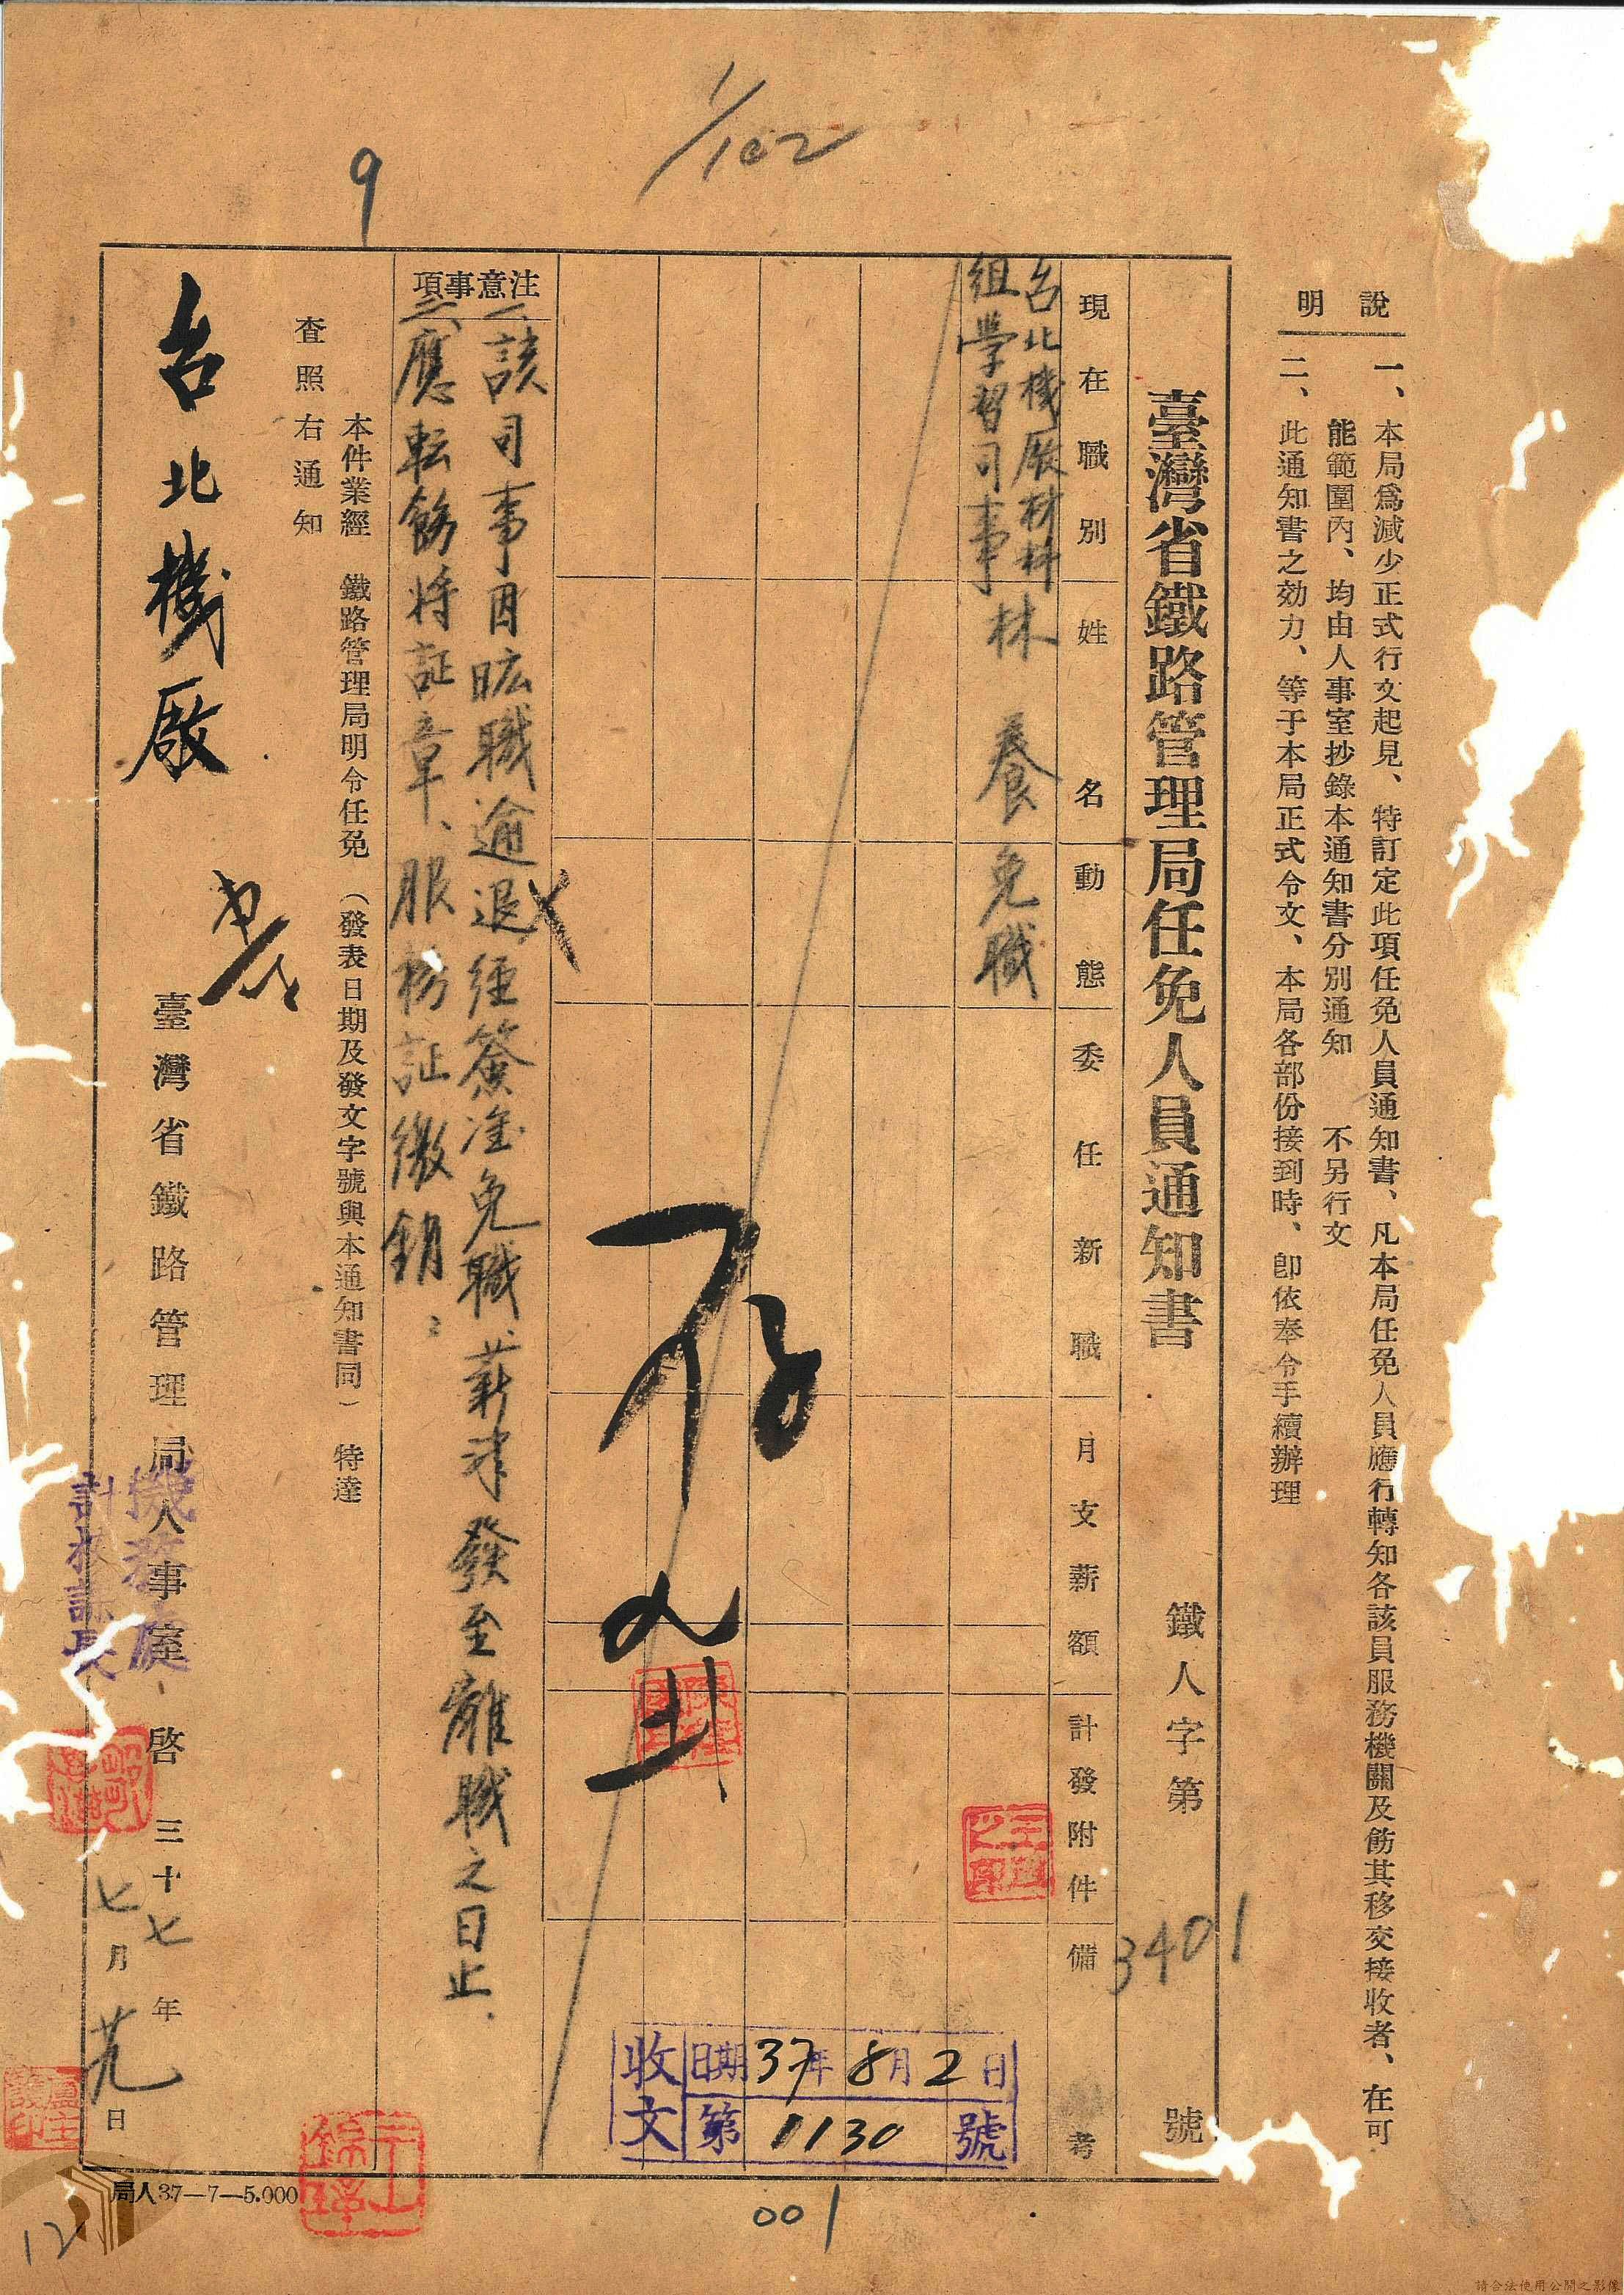 1/102
9
說明
一、本局爲減少正式行文起見、特訂定此項任免人員通知書、凡本局任免人員應行轉知各該員服務機關及飭其移交接收者、在可
能範圍內、均由人事室抄錄本通知書分別通知　不另行文
二、此通知書之効力、等于本局正式令文、本局各部份接到時、卽依奉令手續辦理
臺灣省鐵路管理局任免人員通知書
鐵人字第3401號
現在職別
姓名
動態
委任新職
月支薪額
計發附件
備考
台北機厰材料
組學習司事
林養
免職
存
收文
日期37年8月2日
第1130號
注意事項
一、該司事因旷職逾退経簽准免職、薪津發至離職之日止、
二、應転飭将証章、服務証繳銷、
本件業經　鐵路管理局明令任免（發表日期及發文字號與本通知書同）　特達
查照右通知
台北機厰
臺灣省鐵路管理局人事室啓
三十七年七月廿九日
機務處
計核課長
局人37—7—5.000
001
12
請合法使用公開之影像